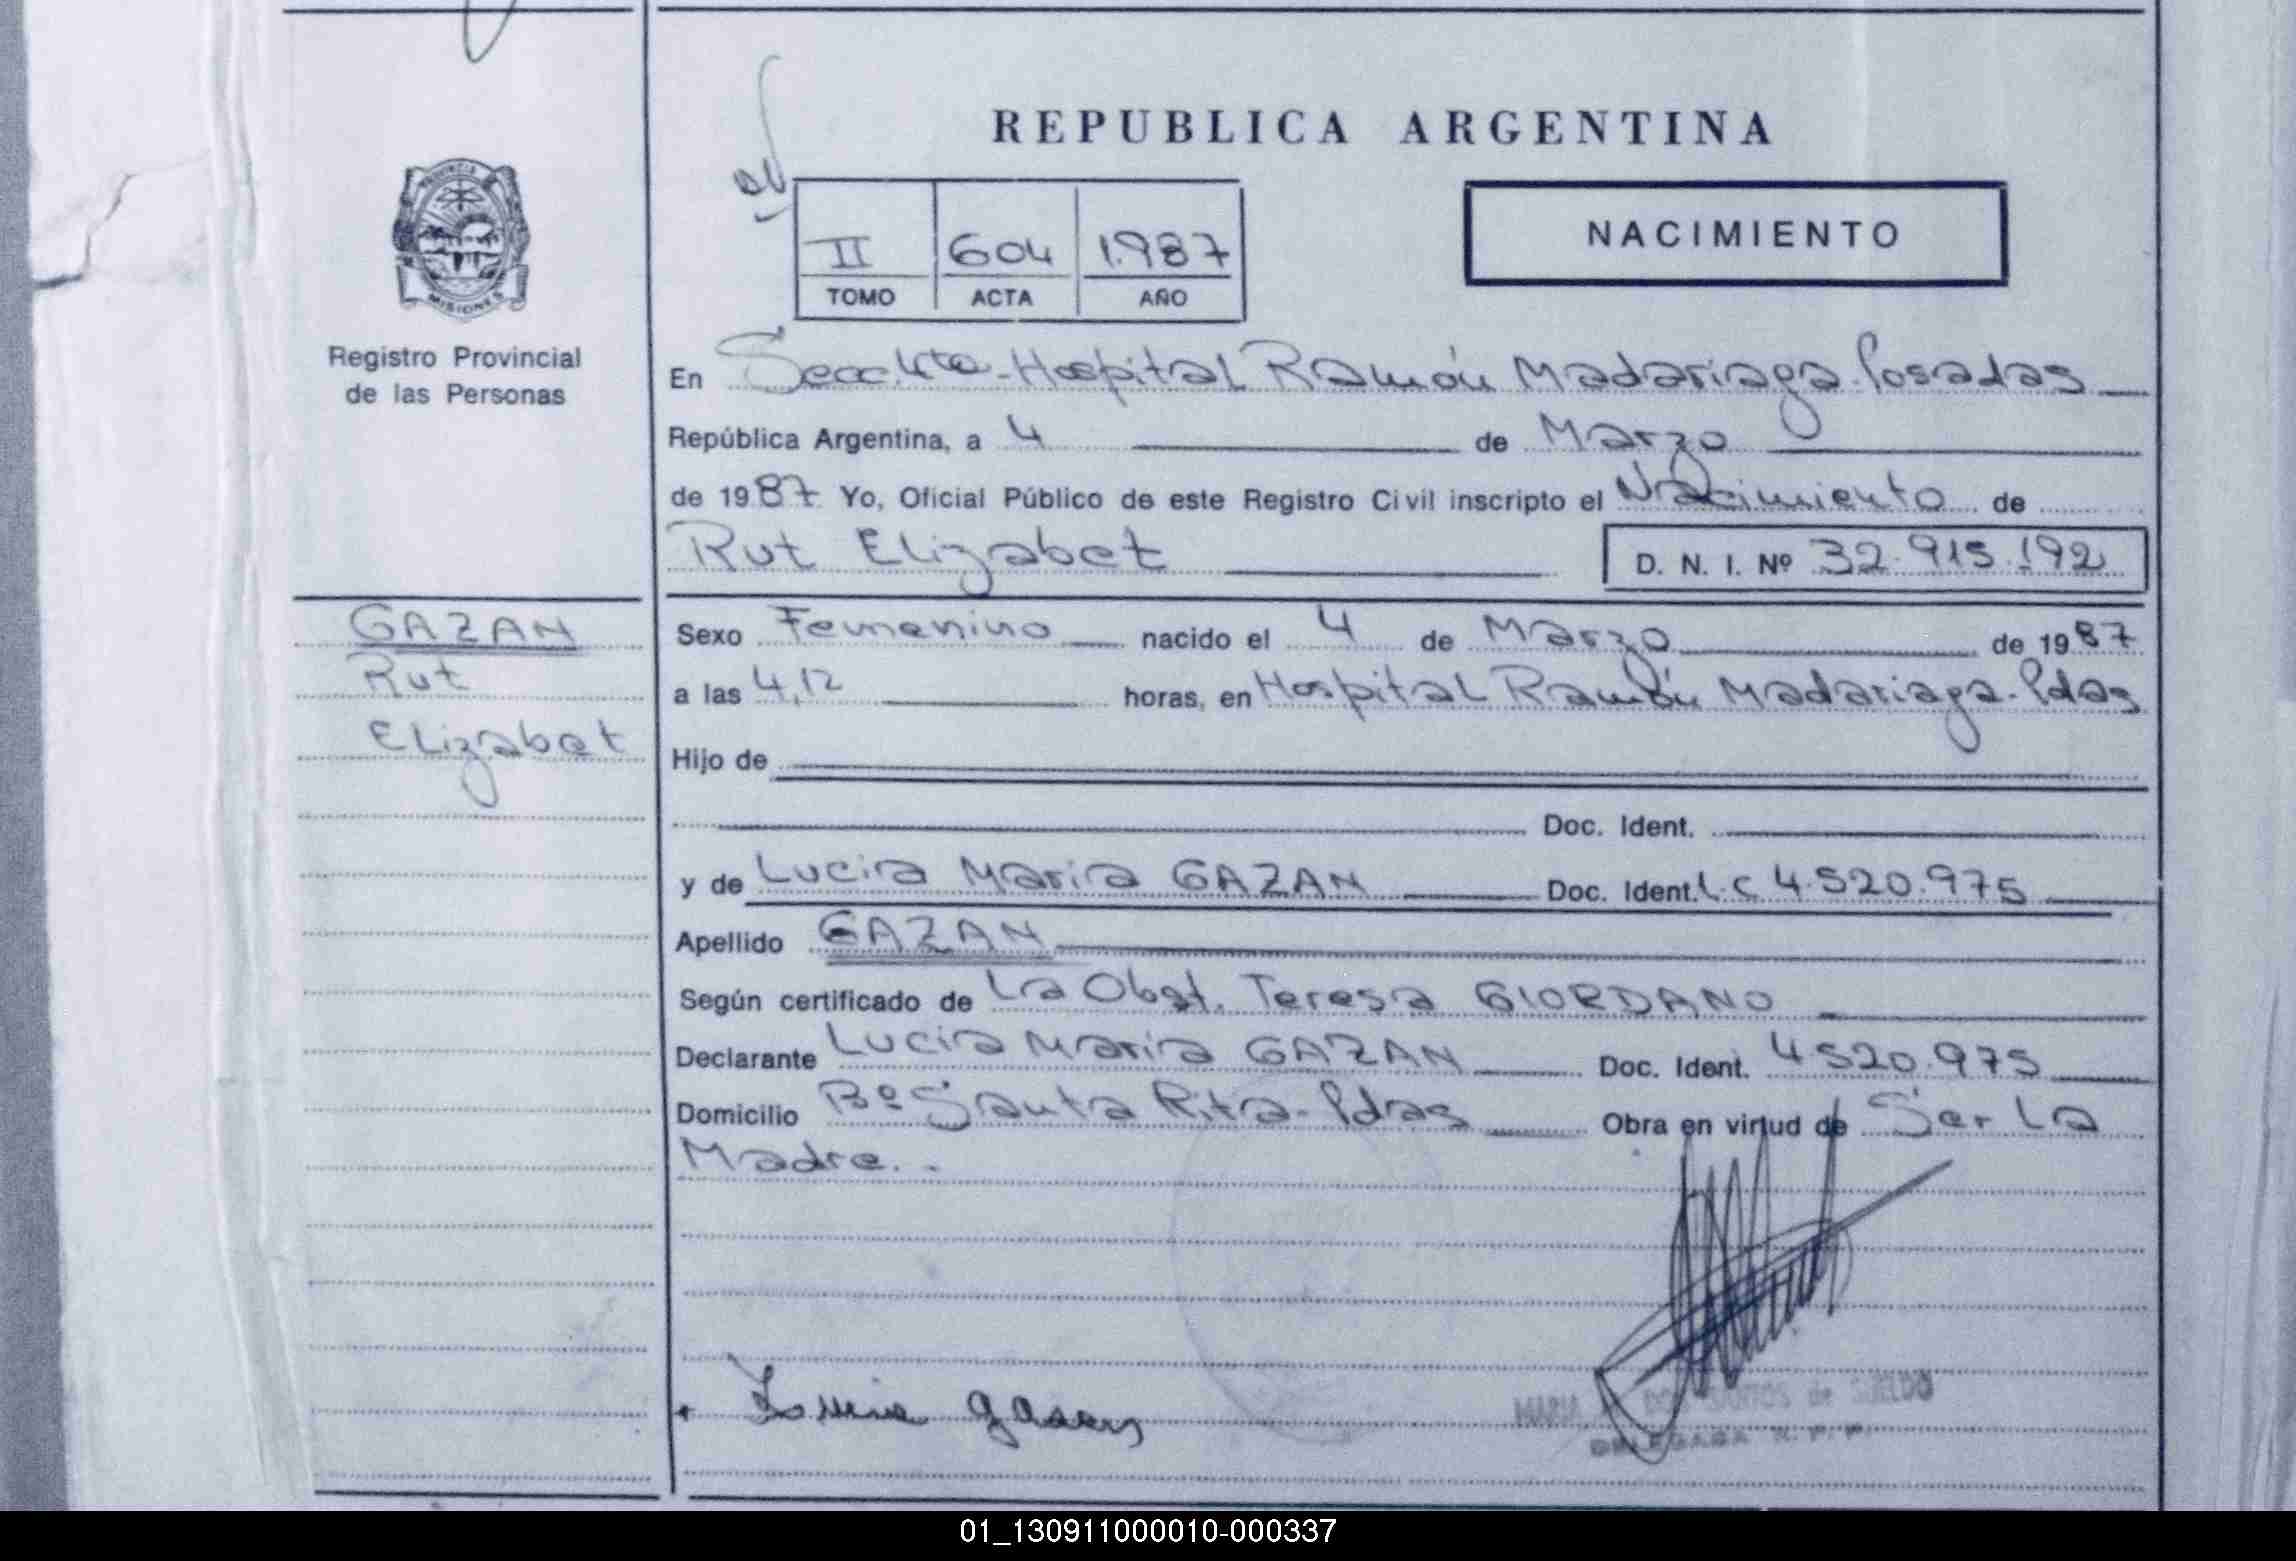 REPUBLICA ARGENTINA
NACIMIENTO
II 604 1.987
TOMO ACTA AÑO
PROVINCIA
MISIONES
Registro Provincial
de las Personas
En Secc. 4ta - Hospital Ramón Madariaga - Posadas
República Argentina, a 4 de Marzo
de 1987 Yo, Oficial Público de este Registro Civil inscripto el Nacimiento de
Rut Elizabet D. N. I. Nº 32.915.192
GAZAN
Rut
Elizabet
Sexo Femenino nacido el 4 de Marzo de 1987
a las 4,12 horas, en Hospital Ramón Madariaga - Pdas
Hijo de
Doc. Ident.
y de Lucia Maria GAZAN Doc. Ident. L.C 4.520.975
Apellido GAZAN
Según certificado de La Obst. Teresa GIORDANO
Declarante Lucia Maria GAZAN Doc. Ident. 4520.975
Domicilio Bº Santa Rita - Pdas Obra en virtud de Ser La
Madre. . -
MARIA DOS SANTOS de SUELDO
DELEGADA R. P. P.
01_130911000010-000337